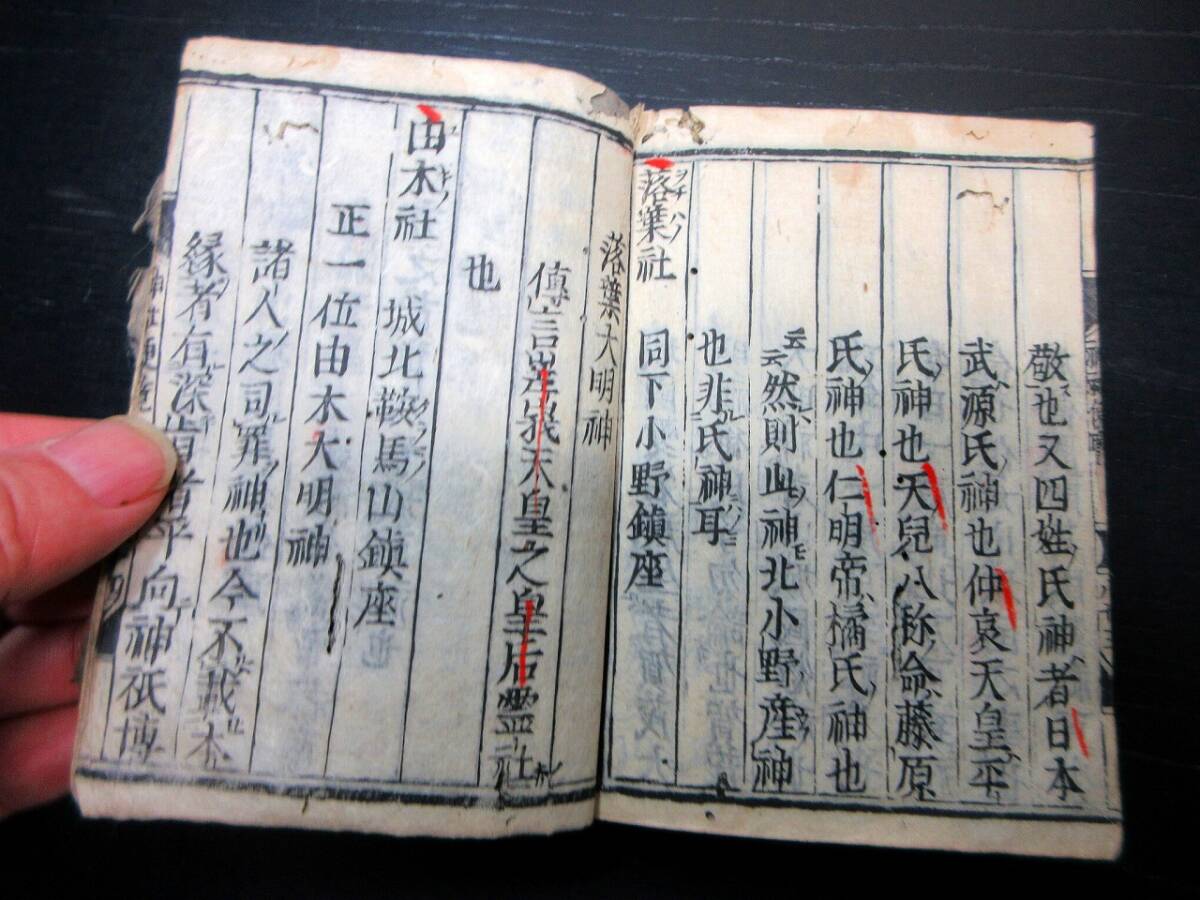 敬也又四姓氏神者日本
武源氏神也仲哀天皇平
氏神也天兒八称命藤原
氏神也仁明帝橘氏神也
云云然則此神北小野産神
也非氏神耳
落葉社 同下小野鎮座
落葉大明神
傳言嵯峨天皇之皇后霊社
也
由木社 城北鞍馬山鎮座
正一位由木大明神
諸人之司罪神也今不載本
縁者有深旨者乎向神祇博